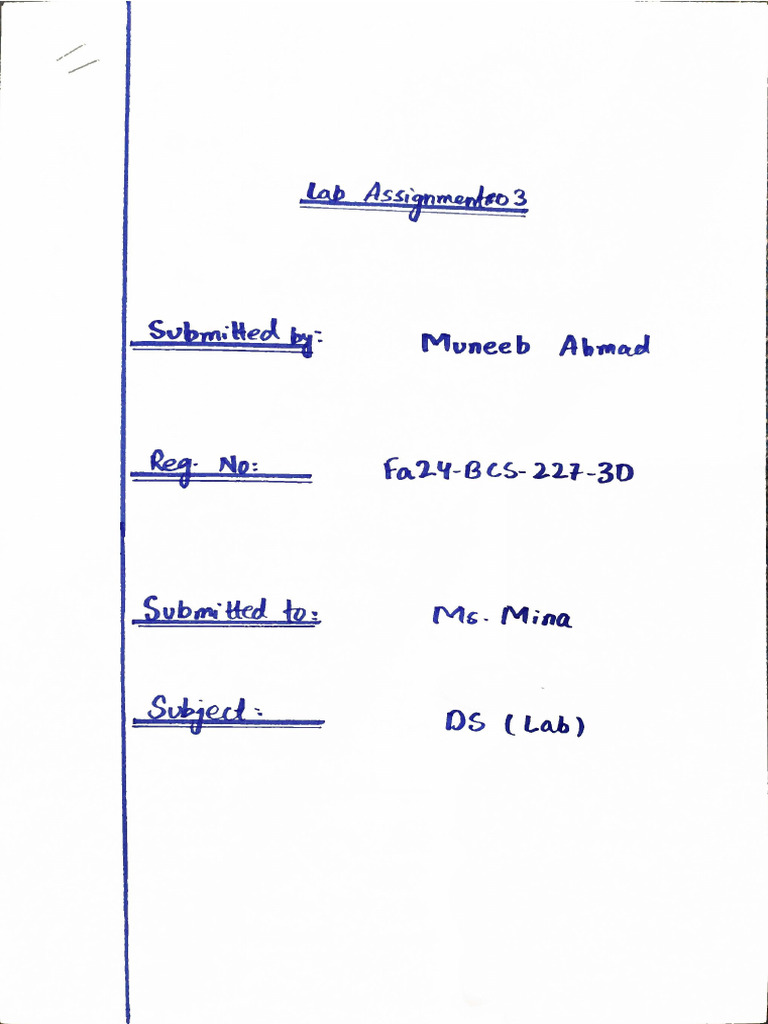 Lab Assignment#03
Submitted by: Muneeb Ahmad
Reg. No: Fa24-BCS-227-3D
Submitted to: Ms. Mina
Subject: DS (Lab)